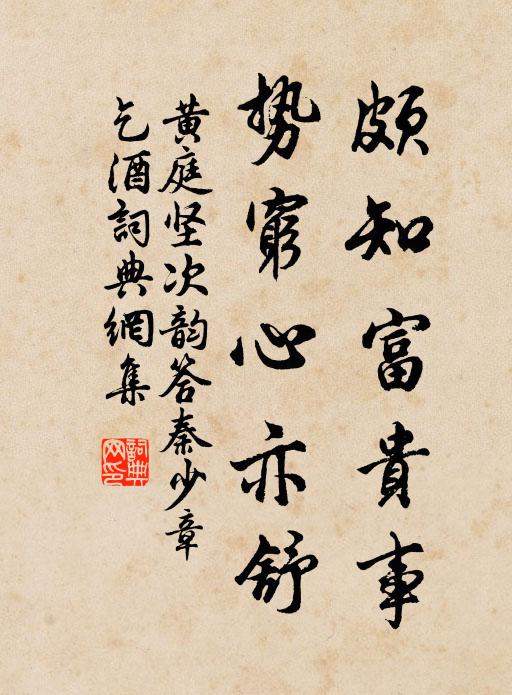 颇知富貴事
势窮心亦舒
黃庭坚次韵答秦少章
乞酒詞典網集
詞典网印